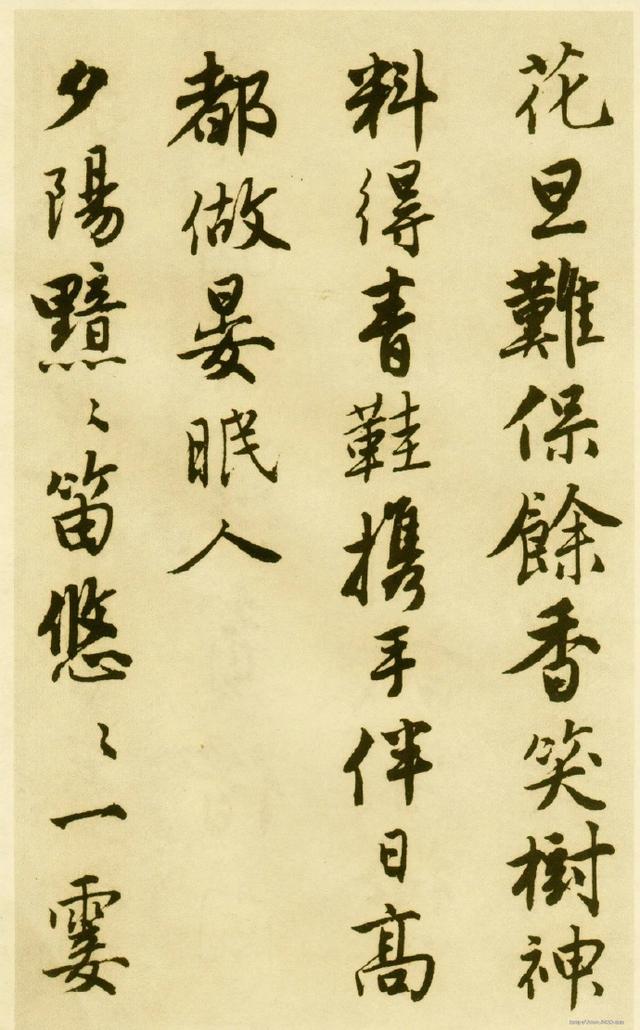 花旦難保餘香笑樹神
料得青鞋携手伴日高
都做晏眠人
夕陽黯〻笛悠〻一霎